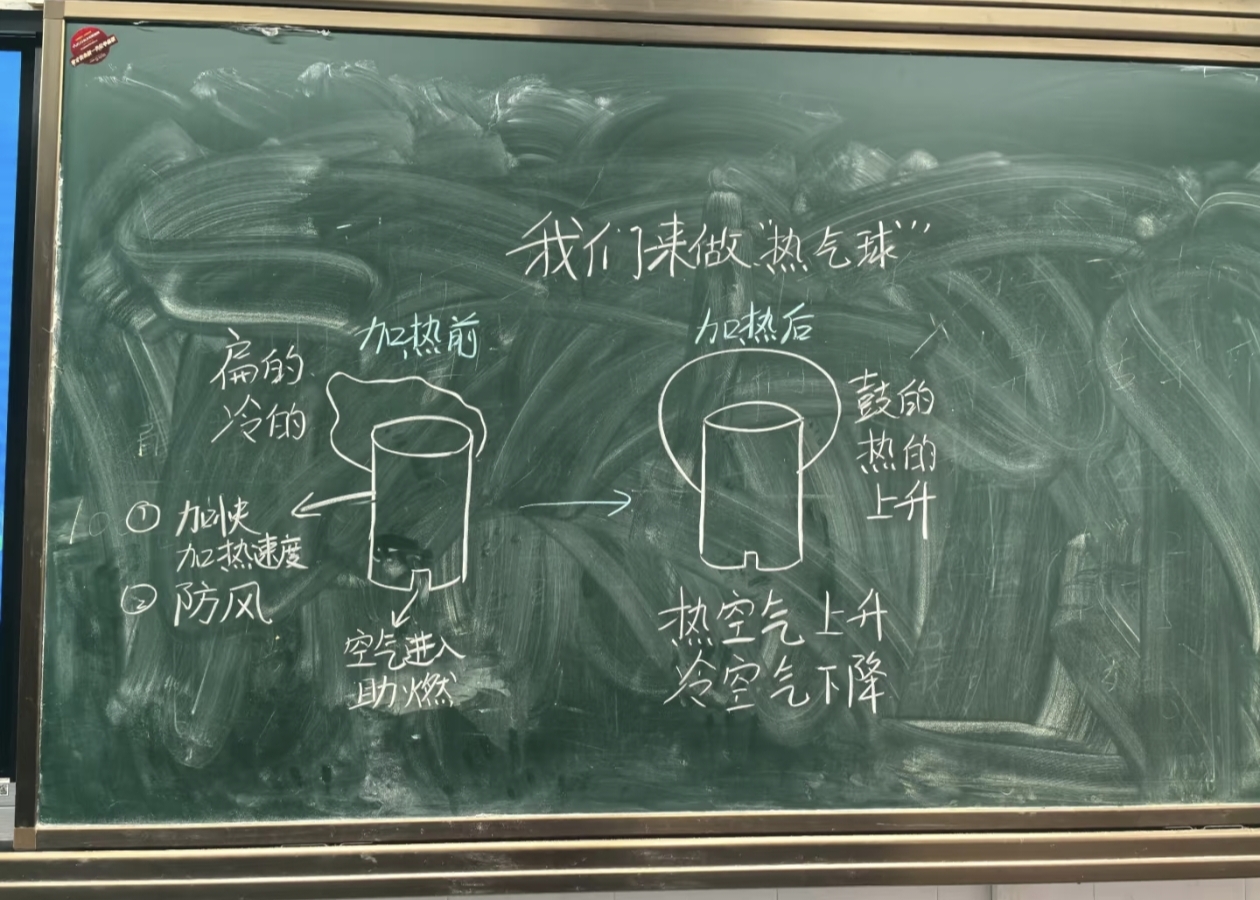 我们来做“热气球”
加热前
扁的
冷的
① 加快
加热速度
② 防风
空气进入
助燃
加热后
鼓的
热的
上升
热空气上升
冷空气下降